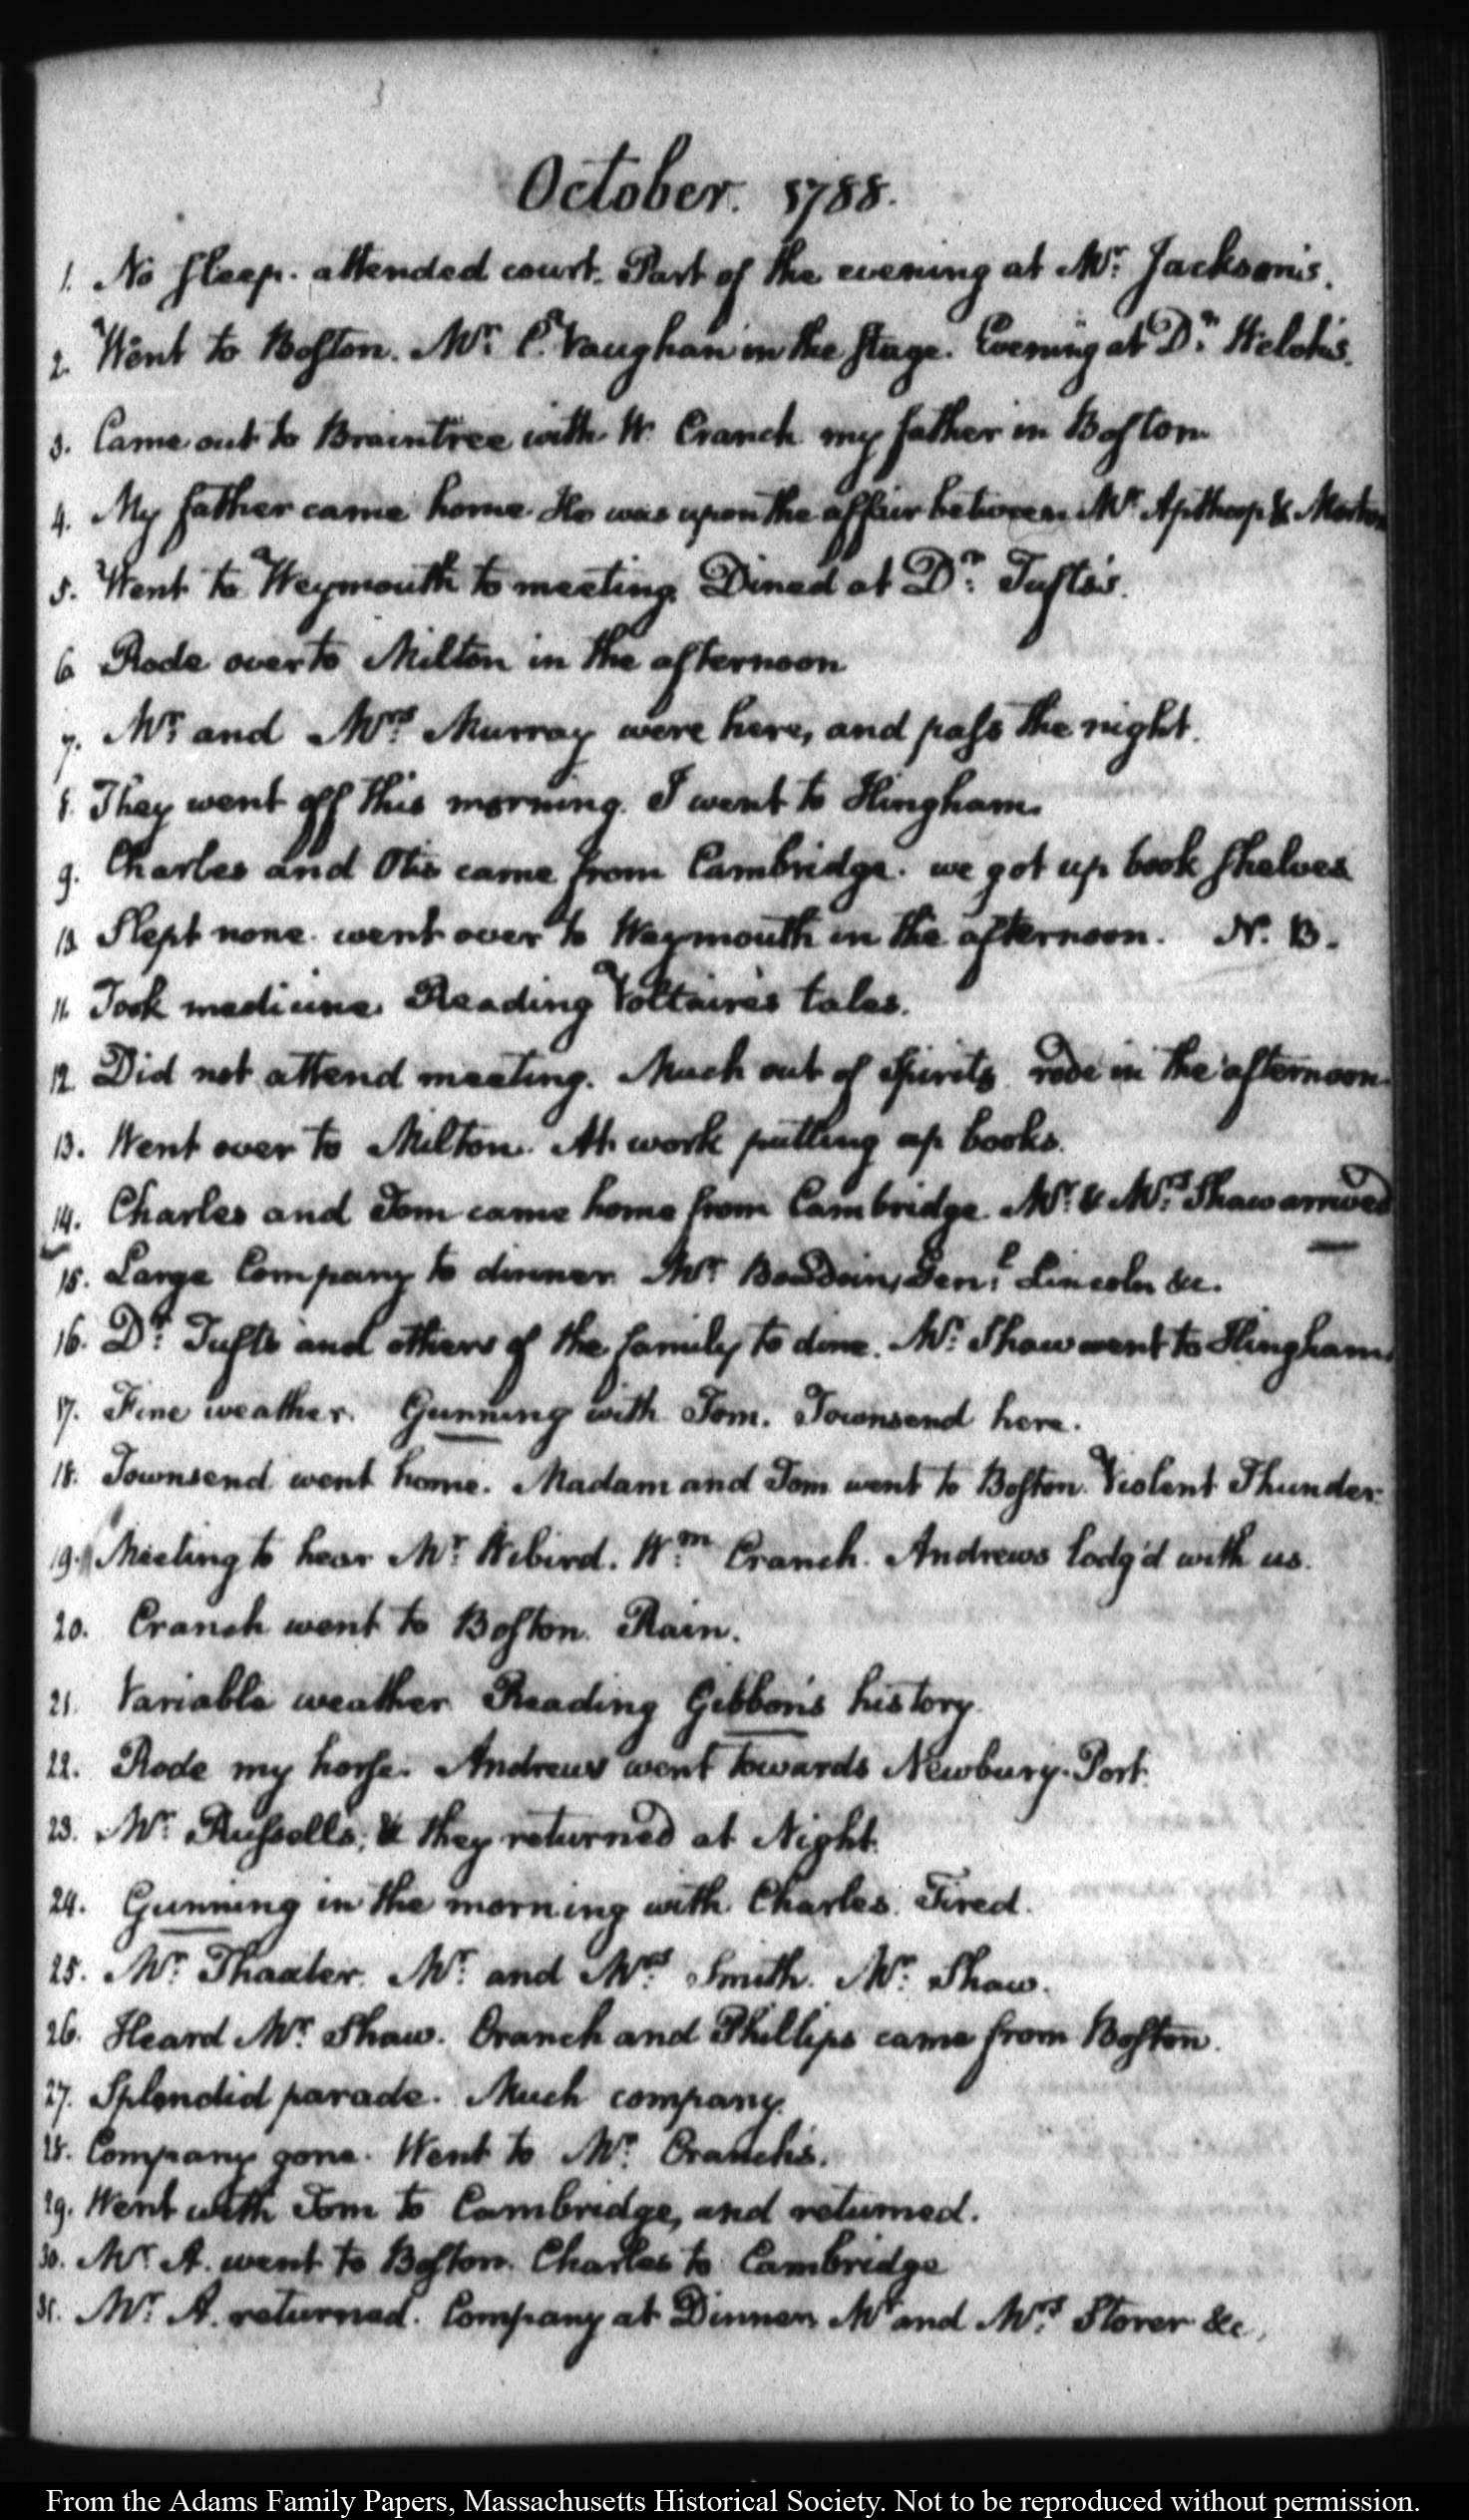 October. 1788.
1. No sleep. attended court. Part of the evening at Mr. Jackson's.
2. Went to Boston. Mr. C. Vaughan in the stage. Evening at Dr. Welch's.
3. Came out to Braintree with W. Cranch my father in Boston
4. My father came home. He was upon the affair between Mr. Apthorp & Morton
5. Went to Weymouth to meeting. Dined at Dr. Tufts's.
6. Rode over to Milton in the afternoon
7. Mr. and Mrs. Murray were here, and pass the night.
8. They went off this morning. I went to Hingham.
9. Charles and Otis came from Cambridge. we got up book shelves
10. Slept none. went over to Weymouth in the afternoon. N. B.
11. Took medicine. Reading Voltaire's tales.
12. Did not attend meeting. Much out of spirits. rode in the afternoon.
13. Went over to Milton. At work putting up books.
14. Charles and Tom came home from Cambridge. Mr. & Mrs. Shaw arrived
15. Large Company to dinner. Mr. Bowdoin, Genl. Lincoln &c.
16. Dr. Tufts and others of the family to dine. Mr. Shaw went to Hingham.
17. Fine weather. Gunning with Tom. Townsend here.
18. Townsend went home. Madam and Tom went to Boston. Violent Thunder.
19. Meeting to hear Mr. Wibird. Wm. Cranch. Andrews lodg'd with us.
20. Cranch went to Boston. Rain.
21. Variable weather. Reading Gibbon's history.
22. Rode my horse. Andrews went towards Newbury-Port.
23. Mr. Russell's, & they returned at Night.
24. Gunning in the morning with Charles. Tired.
25. Mr. Thaxter. Mr. and Mrs. Smith. Mr. Shaw.
26. Heard Mr. Shaw. Cranch and Phillips came from Boston.
27. Splendid parade. Much company.
28. Company gone. Went to Mr. Cranch's.
29. Went with Tom to Cambridge, and returned.
30. Mr. A. went to Boston. Charles to Cambridge
31. Mr. A. returned. Company at Dinner. Mr. and Mrs. Storer &c.
From the Adams Family Papers, Massachusetts Historical Society. Not to be reproduced without permission.